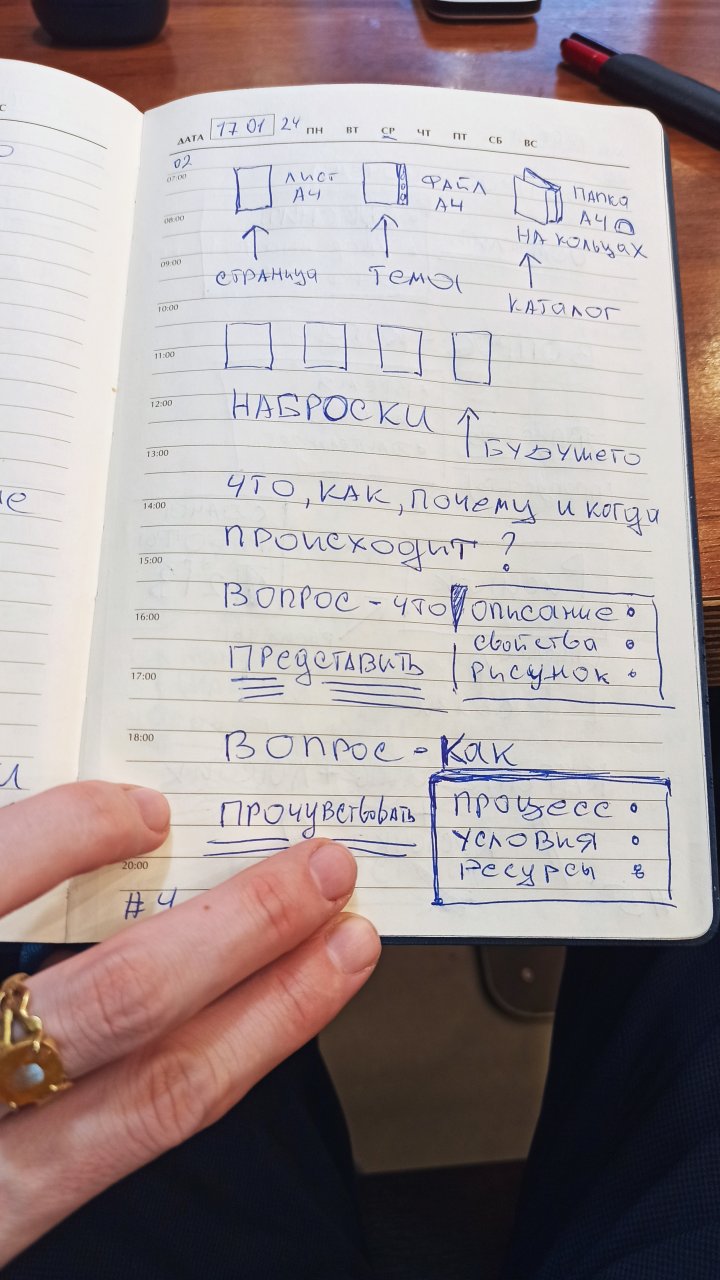 С
ДАТА 17 01 24 ПН ВТ СР ЧТ ПТ СБ ВС
02
07:00
ЛИСТ
А4
ФАЙЛ
А4
ПАПКА
А4
НА КОЛЬЦАХ
08:00
09:00
СТРАНИЦА
ТЕМЫ
КАТАЛОГ
10:00
11:00
12:00
НАБРОСКИ
БУДУЩЕГО
13:00
ЧТО, КАК, ПОЧЕМУ И КОГДА
14:00
ПРОИСХОДИТ ?
15:00
ВОПРОС - ЧТО
ОПИСАНИЕ
16:00
СВОЙСТВА
ПРЕДСТАВИТЬ
РИСУНОК
17:00
18:00
ВОПРОС - КАК
ПРОЧУВСТВОВАТЬ
ПРОЦЕСС
УСЛОВИЯ
РЕСУРСЫ
20:00
# 4